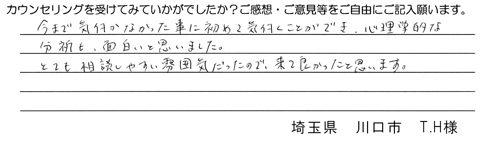 カウンセリングを受けてみていかがでしたか？ご感想・ご意見等をご自由にご記入願います。
今まで気付かなかった事に初めて気付くことができ、心理学的な
分析も、面白いと思いました。
とても相談しやすい雰囲気だったので、来て良かったと思います。
埼玉県　川口市　T.H様